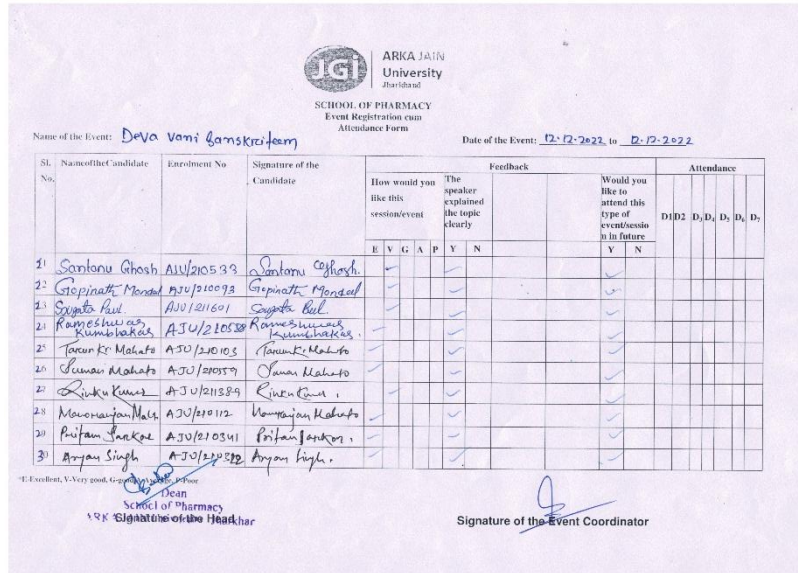 JGi
ARKA JAIN
University
Jharkhand
SCHOOL OF PHARMACY
Event Registration cum
Attendance Form
Name of the Event: Deva vani Sanskriteem
Date of the Event: 12-12-2022 to 12-12-2022
Sl. No. NameoftheCandidate Enrolment No Signature of the Candidate Feedback Attendance
How would you like this session/event The speaker explained the topic clearly Would you like to attend this type of event/sessio n in future D1 D2 D3 D4 D5 D6 D7
E V G A P Y N Y N
21 Santanu Ghosh AJU/210533 Santanu Ghosh.
22 Gopinath Mondal AJU/210093 Gopinath Mondal
23 Sougata Paul. AJU/211601 Sougata Paul.
24 Rameshwar Kumbhakar AJU/210588 Rameshwar Kumbhakar.
25 Tarun Kr Mahato AJU/210103 Tarun Kr Mahato
26 Suman Mahato AJU/210559 Suman Mahato
27 Rinku Kumar AJU/211389 Rinku Kumar.
28 Manoranjan Mah. AJU/210112 Manoranjan Mahato
29 Pritam Sarkar AJU/210341 Pritam Sarkar.
30 Aryan Singh Aryan Singh.
*E-Excellent, V-Very good, G-good, P-Poor
Dean
School of Pharmacy
Signature of the Head
Signature of the Event Coordinator